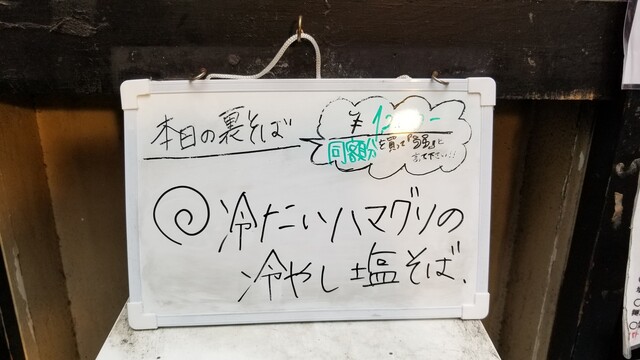 本日の裏そば
同額分を買って
言って下さい!!
冷たいハマグリの
冷やし塩そば、